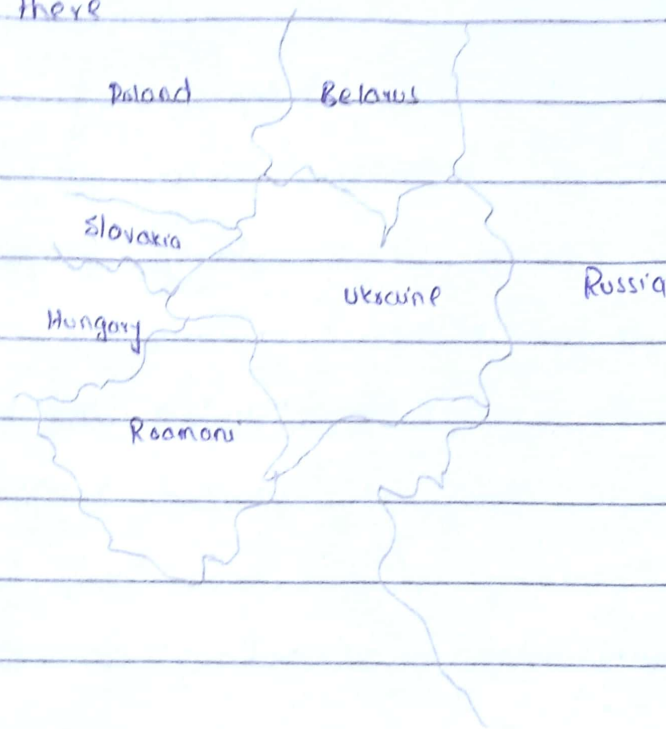 there
Poland Belarus
Slovakia
Ukraine Russia
Hungary
Roomani